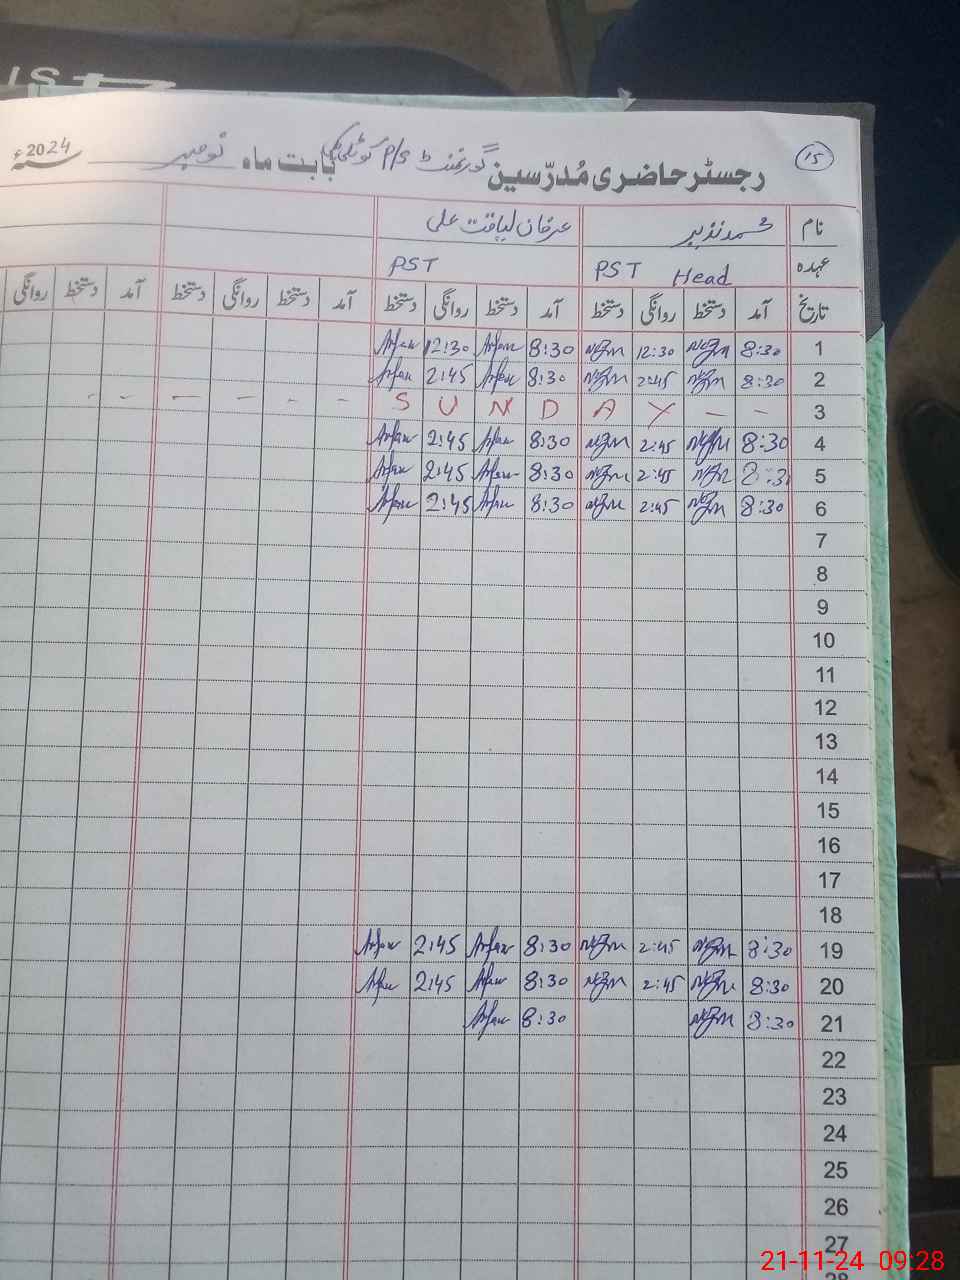 15
رجسٹر حاضری مُدرّسین گورنمنٹ P/S بابت ماہ نومبر 2024ء
نام محمد نذیر عرفان لیاقت علی
عہدہ PST Head PST
تاریخ آمد دستخط روانگی دستخط آمد دستخط روانگی دستخط آمد دستخط روانگی دستخط آمد دستخط روانگی
1 8:30 12:30 8:30 Arfan 12:30 Arfan
2 8:30 2:45 8:30 Arfan 2:45 Arfan
3 - - S U N D A Y - - - - - -
4 8:30 2:45 8:30 Arfan 2:45 Arfan
5 8:30 2:45 8:30 Arfan 2:45 Arfan
6 8:30 2:45 8:30 Arfan 2:45 Arfan
7
8
9
10
11
12
13
14
15
16
17
18
19 8:30 2:45 8:30 Arfan 2:45 Arfan
20 8:30 2:45 8:30 Arfan 2:45 Arfan
21 8:30 8:30 Arfan
22
23
24
25
26
27
28
21-11-24 09:28